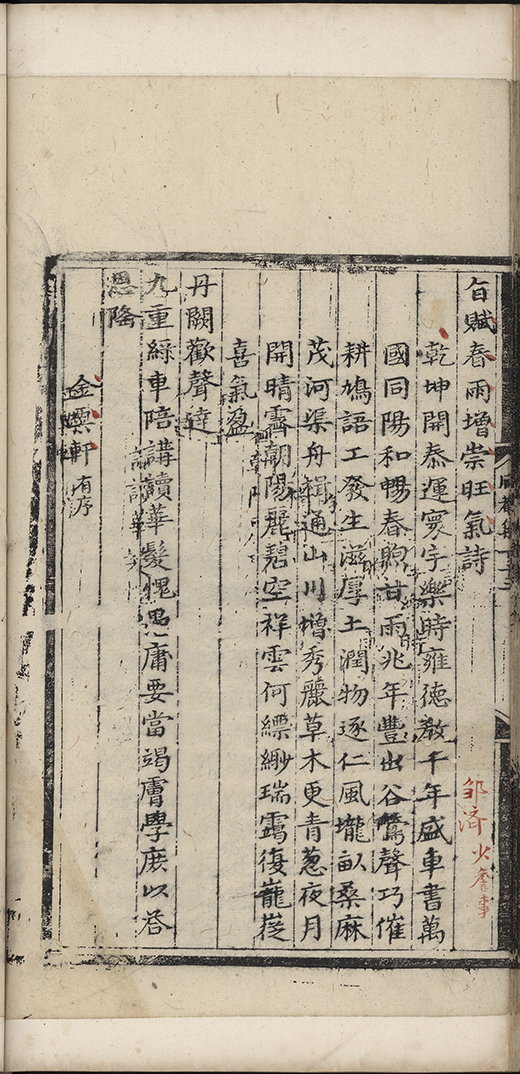 旨賦春雨增崇旺氣詩
乾坤開泰運寰宇樂時雍德教千年盛車書萬
國同陽和暢春煦甘雨兆年豐出谷鶯聲巧催
耕鳩語工發生滋厚土潤物逐仁風壠畝桑麻
茂河渠舟楫通山川增秀麗草木更青葱夜月
開晴霽朝陽麗碧空祥雲何縹緲瑞靄復巃嵸
喜氣盈
丹闕歡聲達
九重緑車陪講讀華髮愧愚庸要當竭膚學庶以荅
恩隆
金蘭軒有序
鄒濟少詹事